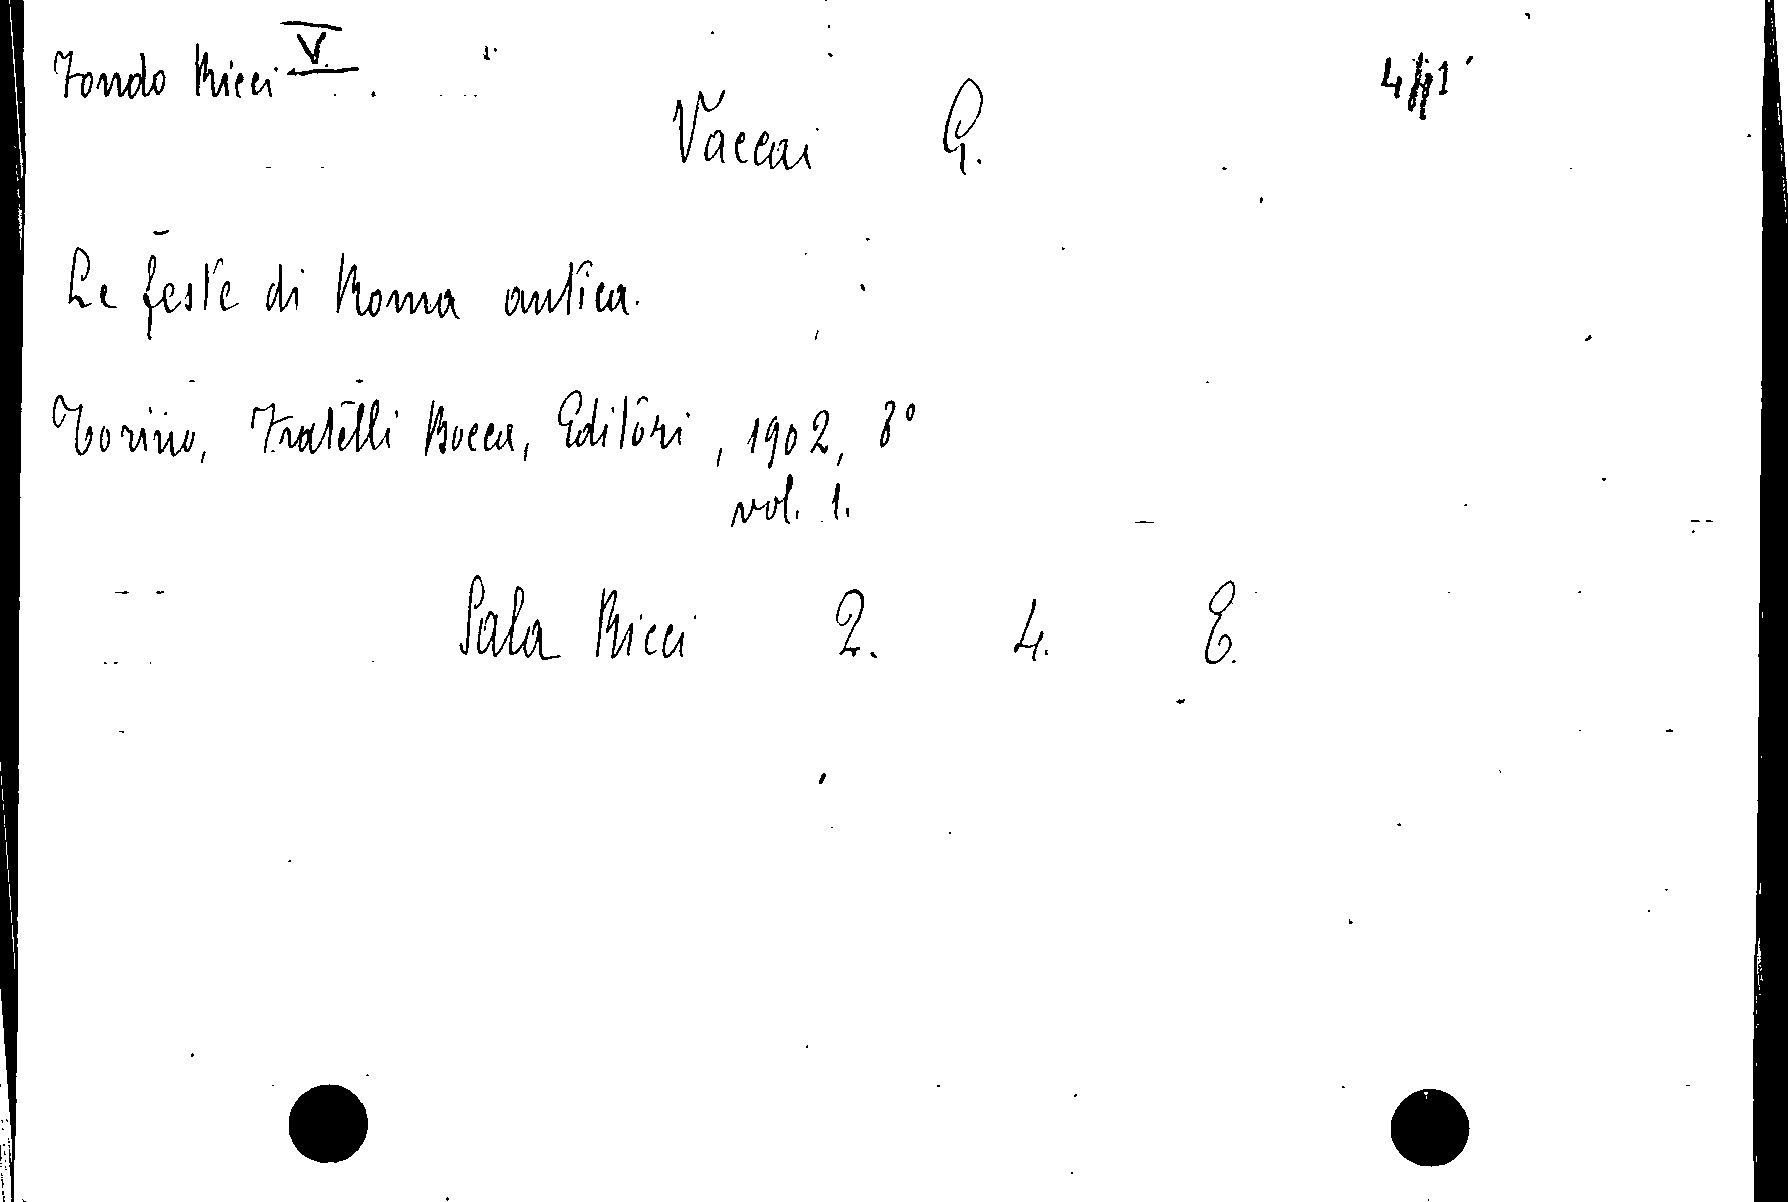 Fondo Ricci V.
Vaccai G.
Le feste di Roma antica.
Torino, Fratelli Bocca, Editori, 1902, 8°
vol. 1.
Sala Ricci 2. 4. E.